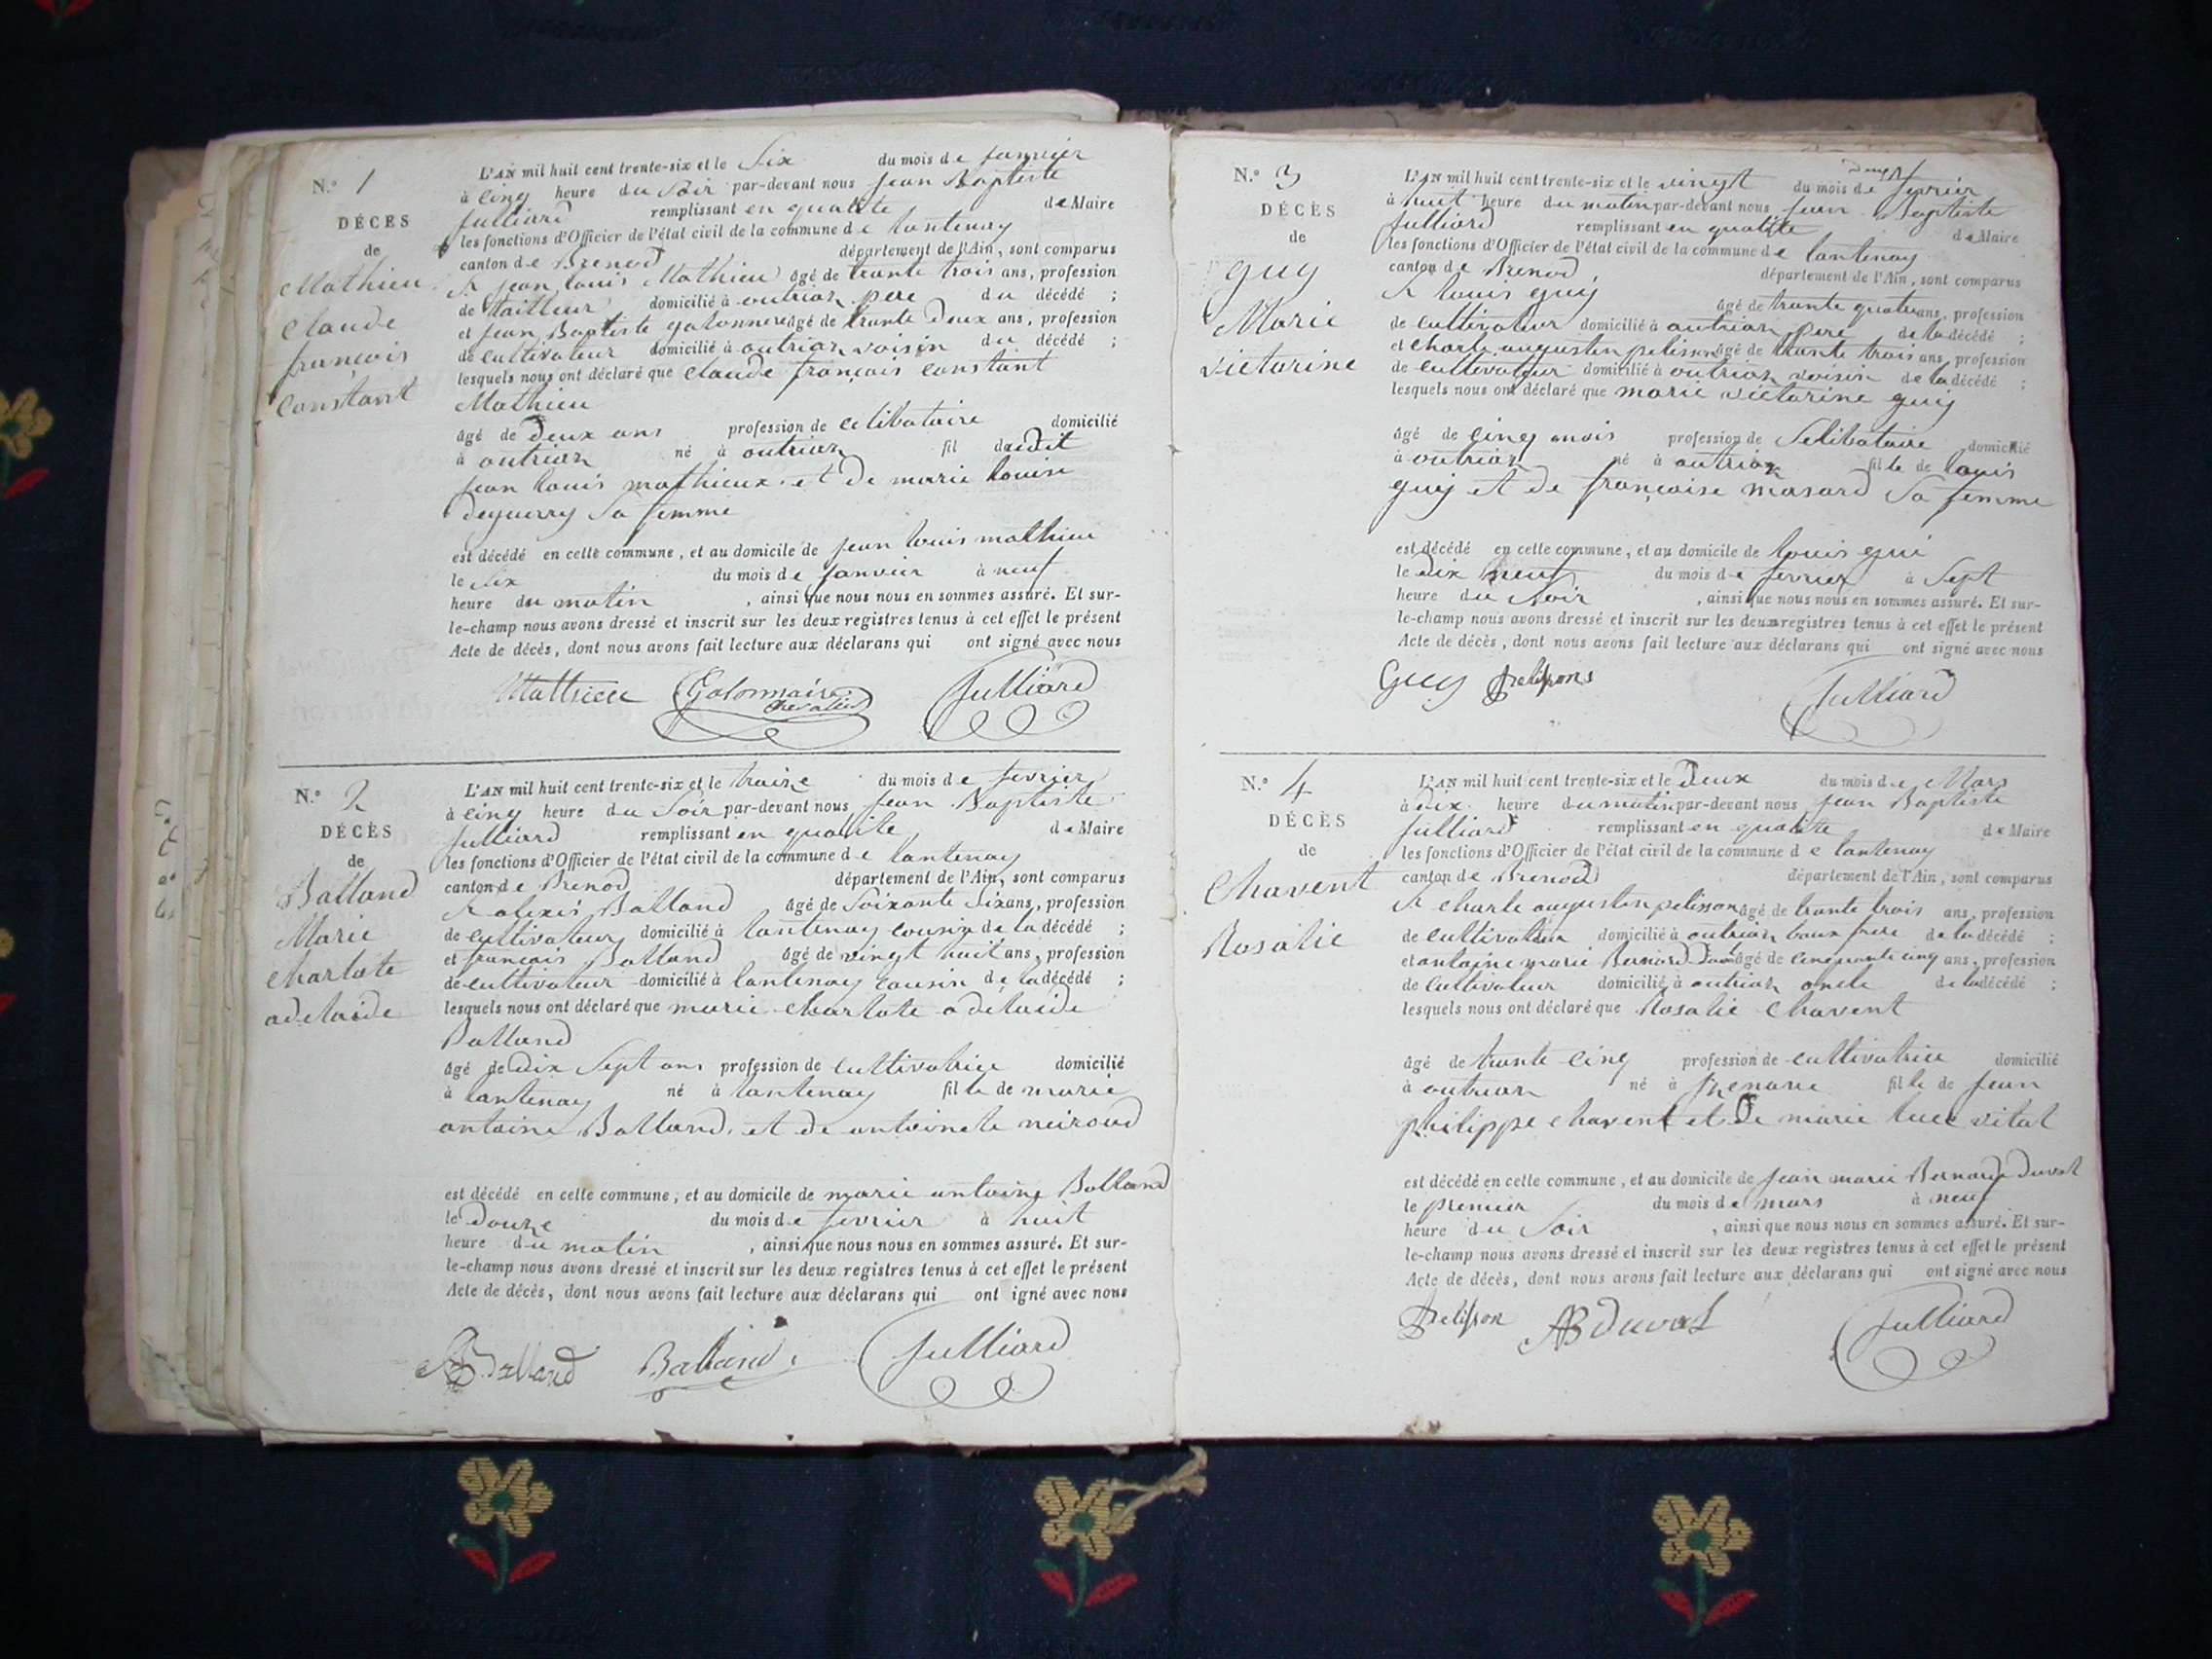 N.º 1
DÉCÈS
de
Mathieu
Claude
françois
Constant
L'AN mil huit cent trente-six et le Six du mois de janvier
à cinq heure du Soir par-devant nous jean Baptiste
Julliard remplissant en qualite de Maire
les fonctions d'Officier de l'état civil de la commune de lantenay
canton de Brenod département de l'Ain, sont comparus
Sr jean louis Mathieu âgé de trante trois ans, profession
de tailleur domicilié à outriaz pere du décédé ;
et jean Baptiste golonnere âgé de trante deux ans, profession
de cultivateur domicilié à outriaz voisin du décédé ;
lesquels nous ont déclaré que Claude françois Constant
Mathieu
âgé de deux ans profession de celibataire domicilié
à outriaz né à outriaz fil dudit
jean louis mathieux et de marie louise
deguerry Sa femme
est décédé en celle commune, et au domicile de jean louis mathieu
le Six du mois de janvier à neuf
heure du matin , ainsi que nous nous en sommes assuré. Et sur-
le-champ nous avons dressé et inscrit sur les deux registres tenus à cet effet le présent
Acte de décès, dont nous avons fait lecture aux déclarans qui ont signé avec nous
Mathieu Golonnaire Chevalier Julliard
N.º 2
DÉCÈS
de
Balland
Marie
charlote
adelaide
L'AN mil huit cent trente-six et le traize du mois de fevrier
à cinq heure du Soir par-devant nous jean Baptiste
Julliard remplissant en qualite de Maire
les fonctions d'Officier de l'état civil de la commune de lantenay
canton de Brenod département de l'Ain, sont comparus
Sr alexis Balland âgé de Soixante Six ans, profession
de cultivateur domicilié à lantenay cousin de la décédé ;
et françois Balland âgé de vingt huit ans, profession
de cultivateur domicilié à lantenay cousin de la décédé ;
lesquels nous ont déclaré que marie charlote adelaide
Balland
âgé de dix Sept ans profession de cultivatrice domicilié
à lantenay né à lantenay fille de marie
antoine Balland et de antoinete neiroud
est décédé en celle commune, et au domicile de marie antoine Balland
le douze du mois de fevrier à huit
heure du matin , ainsi que nous nous en sommes assuré. Et sur-
le-champ nous avons dressé et inscrit sur les deux registres tenus à cet effet le présent
Acte de décès, dont nous avons fait lecture aux déclarans qui ont igné avec nous
A Balland Balland Julliard
N.º 3
DÉCÈS
de
guy
Marie
victorine
L'AN mil huit cent trente-six et le vingt du mois de fevrier
à huit heure du matin par-devant nous jean Baptiste
Julliard remplissant en qualite de Maire
les fonctions d'Officier de l'état civil de la commune de lantenay
canton de Brenod, département de l'Ain, sont comparus
Sr louis guy âgé de trante quatre ans, profession
de cultivateur domicilié à outriaz pere de la décédé ;
et charle augustin pelisson âgé de trante trois ans, profession
de cultivateur domicilié à outriaz voisin de la décédé ;
lesquels nous ont déclaré que marie victorine guy
âgé de cinq mois profession de Selibataire domicilié
à outriaz né à outriaz fille de louis
guy et de françoise masard Sa femme
est décédé en celle commune, et au domicile de louis gui
le dix neuf du mois de fevrier à Sept
heure du Soir , ainsi que nous nous en sommes assuré. Et sur-
le-champ nous avons dressé et inscrit sur les deux registres tenus à cet effet le présent
Acte de décès, dont nous avons fait lecture aux déclarans qui ont signé avec nous
Guy Julliard
N.º 4
DÉCÈS
de
Chavent
Rosalie
L'AN mil huit cent trente-six et le Deux du mois de Mars
à dix heure du matin par-devant nous jean Baptiste
Julliard remplissant en qualite de Maire
les fonctions d'Officier de l'état civil de la commune de lantenay
canton de Brenod département de l'Ain, sont comparus
Sr charle augustin pelisson âgé de trante trois ans, profession
de cultivateur domicilié à outriaz baux frere de la décédé ;
et antoine marie Bernard âgé de cinquante cinq ans, profession
de cultivateur domicilié à outriaz oncle de la décédé ;
lesquels nous ont déclaré que Rosalie Chavent
âgé de trante cinq profession de cultivatrice domicilié
à outriaz né à fille de jean
philippe chavent et de marie luce vital
est décédé en cette commune, et au domicile de jean marie Bernard duval
le premier du mois de mars à neuf
heure du Soir , ainsi que nous nous en sommes assuré. Et sur-
le-champ nous avons dressé et inscrit sur les deux registres tenus à cet effet le présent
Acte de décès, dont nous avons fait lecture aux déclarans qui ont signé avec nous
Pelisson AB duval Julliard